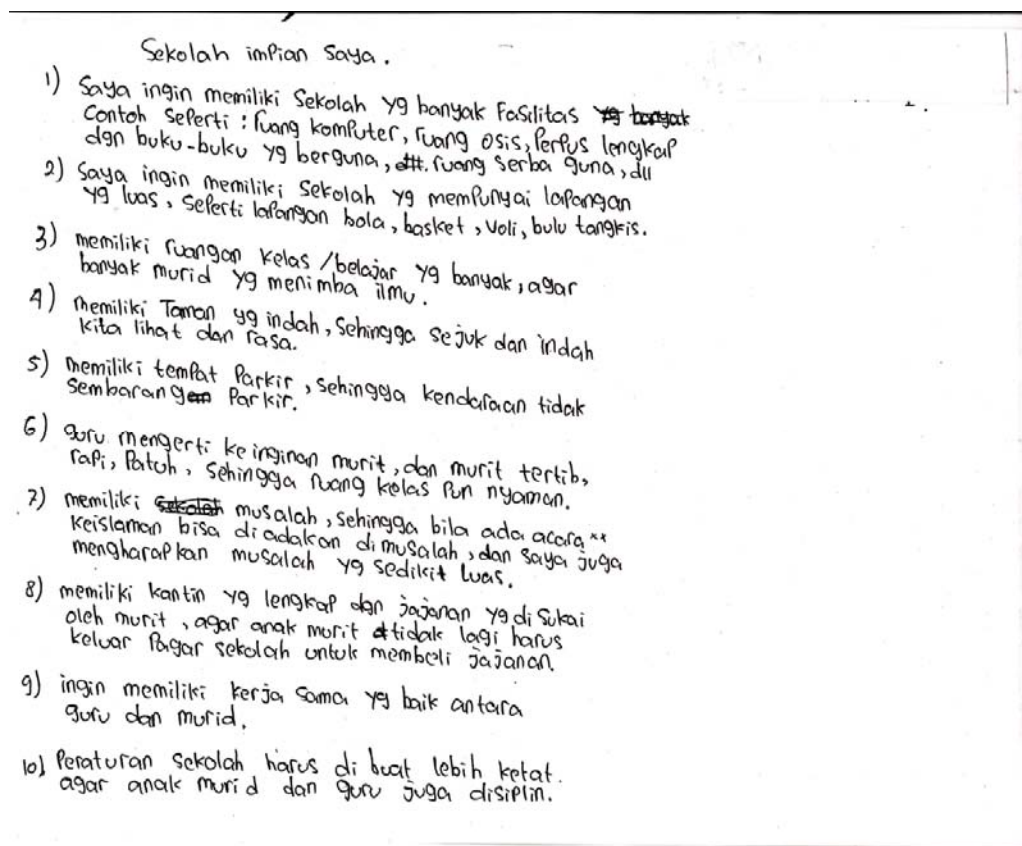 Sekolah impian saya.
1) Saya ingin memiliki Sekolah yg banyak Fasilitas
Contoh Seperti : ruang komputer, ruang osis, Perpus lengkap
dgn buku-buku yg berguna, ruang serba guna, dll
2) Saya ingin memiliki Sekolah yg mempunyai lapangan
yg luas, seperti lapangan bola, basket, voli, bulu tangkis.
3) memiliki ruangan kelas /belajar yg banyak, agar
banyak murid yg menimba ilmu.
4) memiliki Taman yg indah, Sehingga sejuk dan indah
kita lihat dan rasa.
5) memiliki tempat Parkir, sehingga kendaraan tidak
sembarang Parkir.
6) guru mengerti keinginan murit, dan murit tertib,
rapi, Patuh, sehingga ruang kelas Pun nyaman.
7) memiliki musalah, sehingga bila ada acara"
keislaman bisa diadakan dimusalah, dan saya juga
mengharapkan musalah yg sedikit luas.
8) memiliki kantin yg lengkap dgn jajanan yg di sukai
oleh murit, agar anak murit tidak lagi harus
keluar Pagar sekolah untuk membeli jajanan.
9) ingin memiliki kerja sama yg baik antara
guru dan murid.
10) Peraturan sekolah harus di buat lebih ketat.
agar anak murid dan guru juga disiplin.